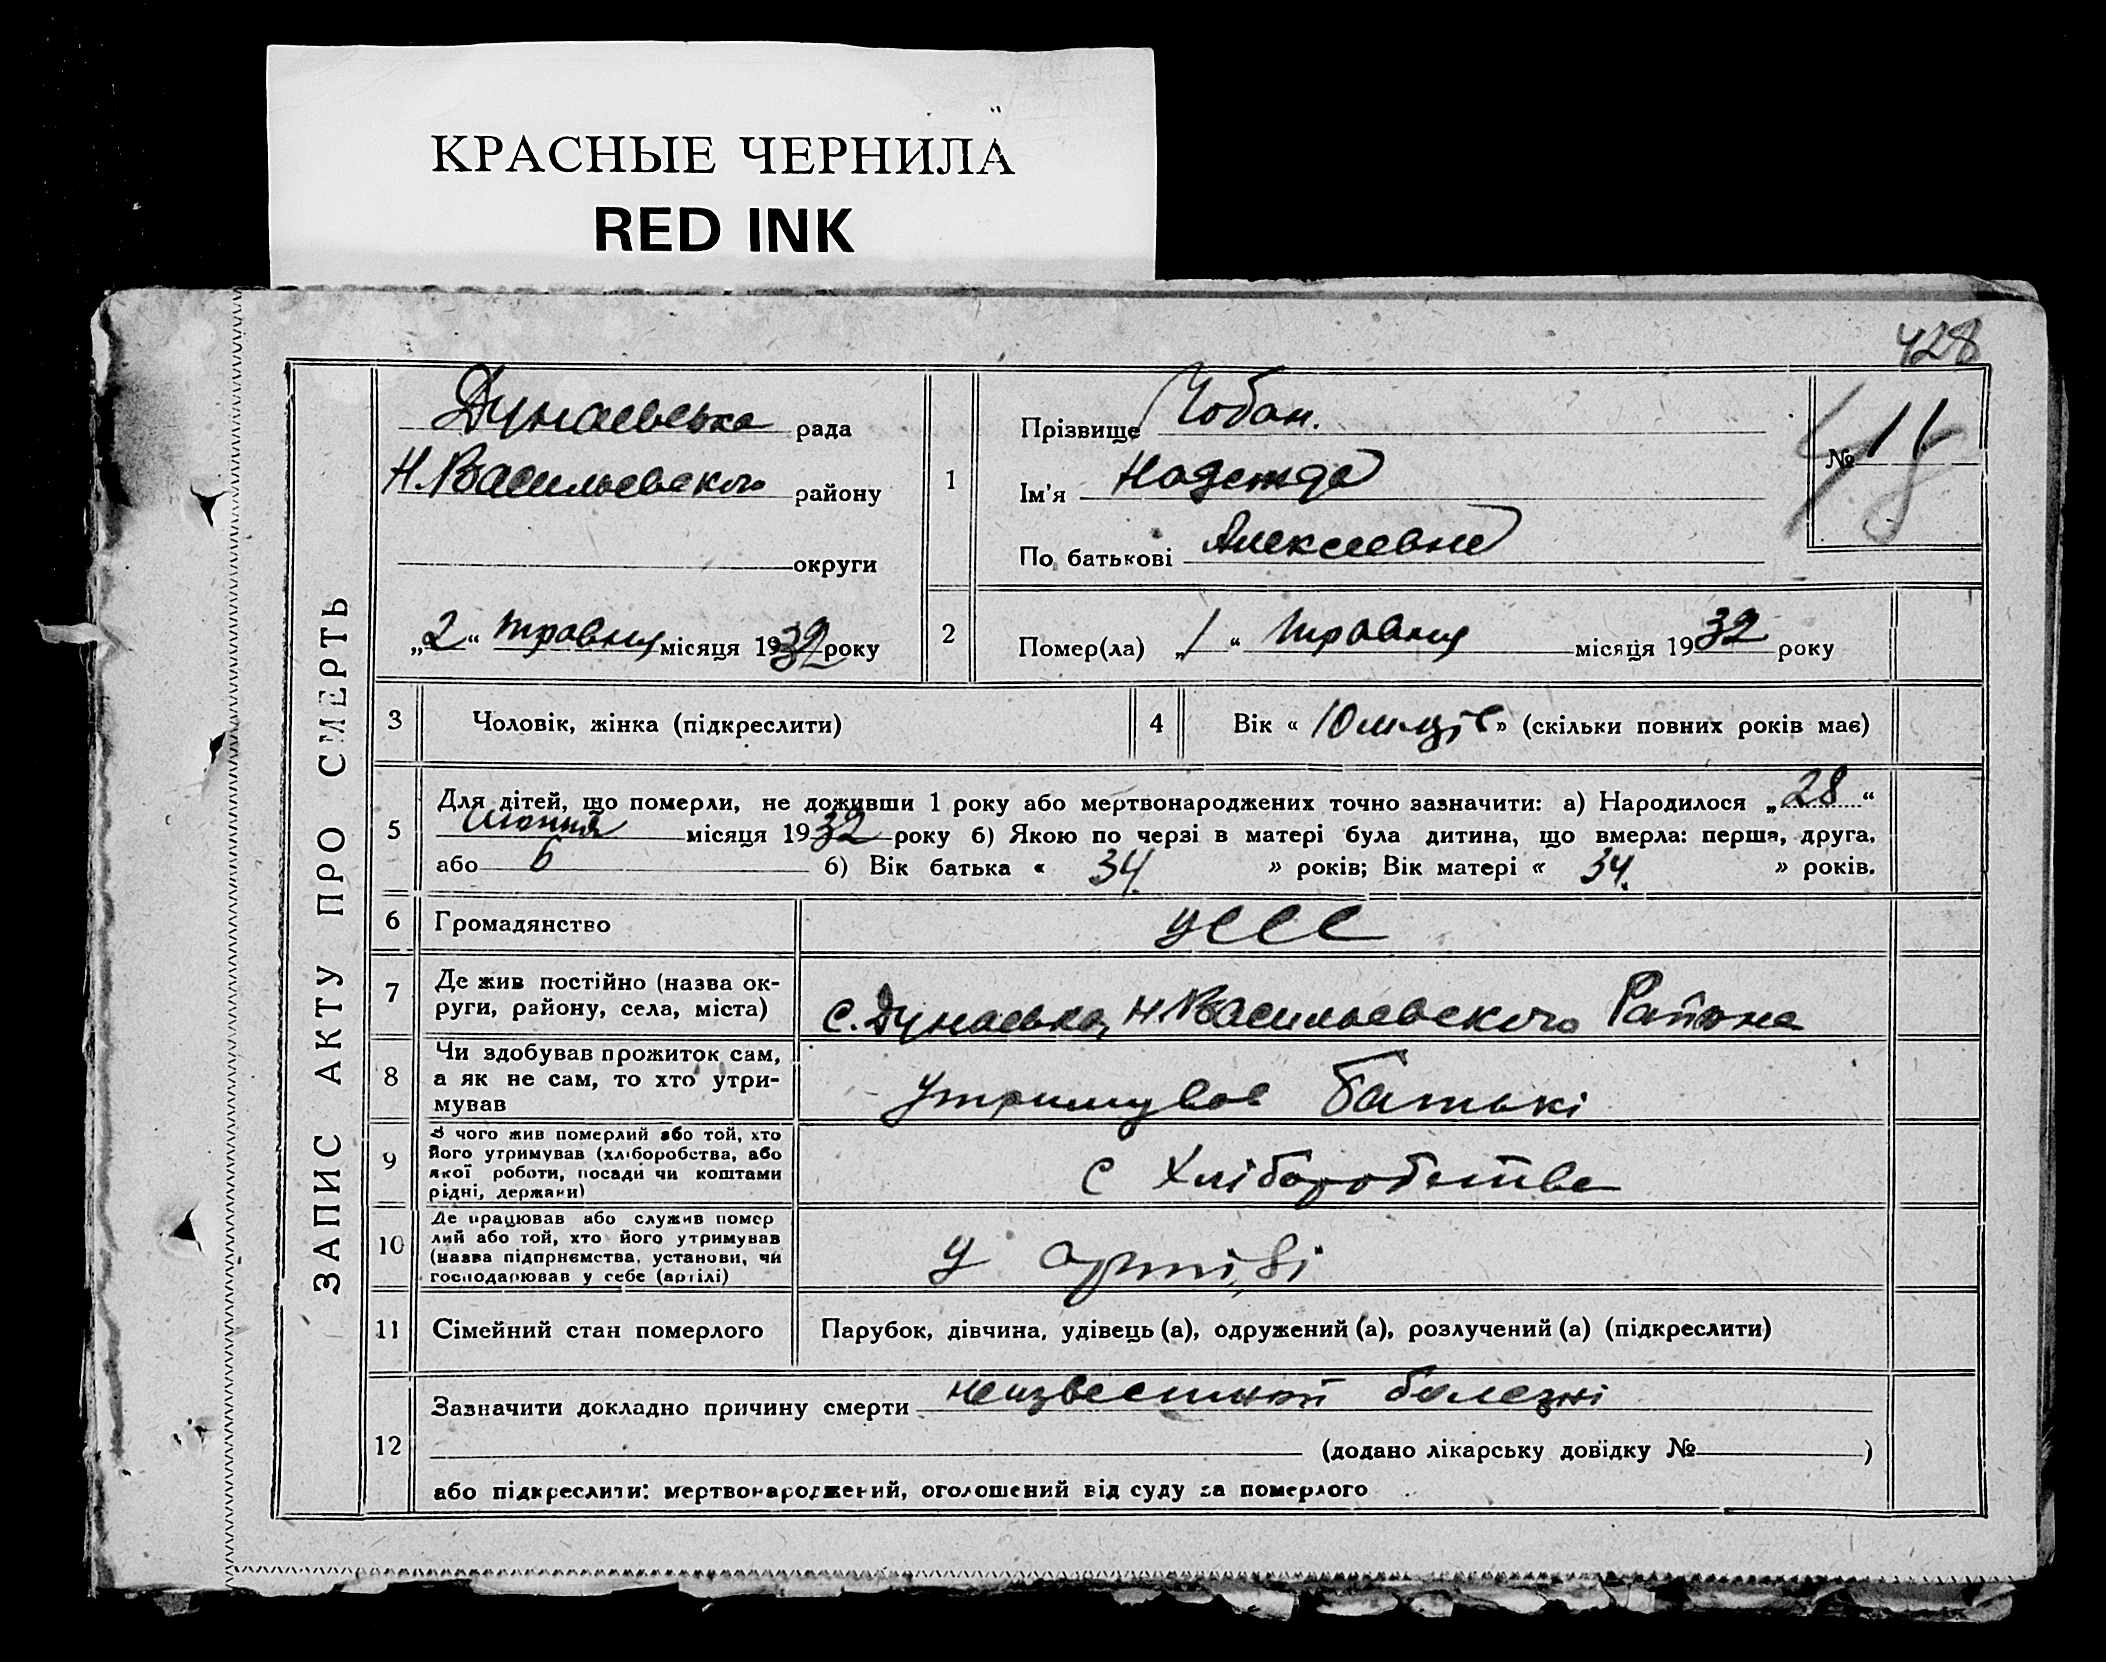 КРАСНЫЕ ЧЕРНИЛА
RED INK
428
ЗАПИС АКТУ ПРО СМЕРТЬ
Дунаевська рада
Н.Васильевского району
округи
„2“ травня місяця 1932 року
1
Прізвище Чобан.
Ім'я Надежда
По батькові Алексеевна
№ 11
2
Помер(ла) „1“ травня місяця 1932 року
3 Чоловік, жінка (підкреслити)
4 Вік « 10 м-ців » (скільки повних років має)
5 Для дітей, що померли, не доживши 1 року або мертвонароджених точно зазначити: а) Народилося „28“
місяця 1932 року б) Якою по черзі в матері була дитина, що вмерла: перша, друга,
або 6 б) Вік батька « 34. » років; Вік матері « 34. » років.
6 Громадянство УССС
7 Де жив постійно (назва ок-
руги, району, села, міста) с. Дунаевка, Н.Васильевского Района
8 Чи здобував прожиток сам,
а як не сам, то хто утри-
мував утримував батькі
9 З чого жив померлий або той, хто
його утримував (хліборобства, або
якої роботи, посади чи коштами
рідні, держави) с Хліборобства
10 Де працював або служив помер
лий або той, хто його утримував
(назва підприємства, установи, чи
господарював у себе (артілі) у артілі
11 Сімейний стан померлого Парубок, дівчина, удівець (а), одружений (а), розлучений (а) (підкреслити)
12 Зазначити докладно причину смерти неизвестной болезні
(додано лікарську довідку № )
або підкреслити: мертвонароджений, оголошений від суду за померлого